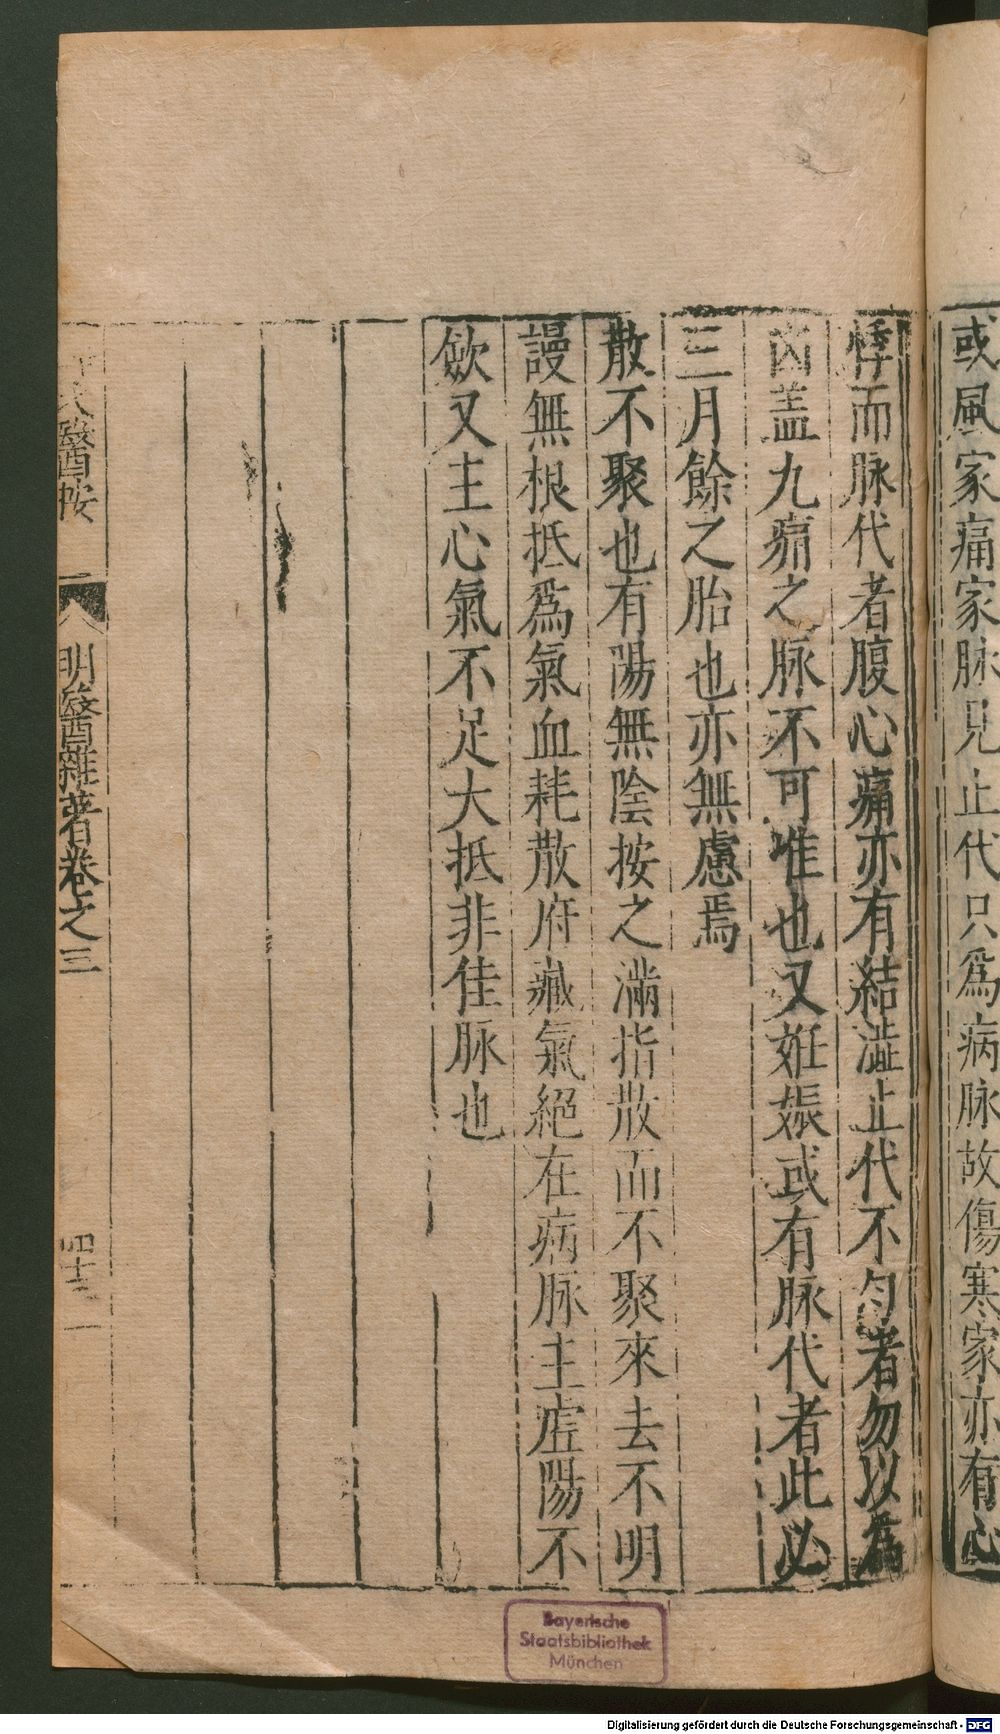 或風家痛家脉見止代只爲病脉故傷寒家亦有心
悸而脉代者腹心痛亦有結澁止代不匀者勿以爲
凶盖九痛之脉不可准也又姙娠或有脉代者此必
三月餘之胎也亦無慮焉
散不聚也有陽無陰按之滿指散而不聚來去不明
謾無根抵爲氣血耗散府藏氣絕在病脉主虛陽不
歛又主心氣不足大抵非佳脉也
氏醫按 明醫雜著卷之三 四十三
Bayerische
Staatsbibliothek
München
Digitalisierung gefördert durch die Deutsche Forschungsgemeinschaft - DFG